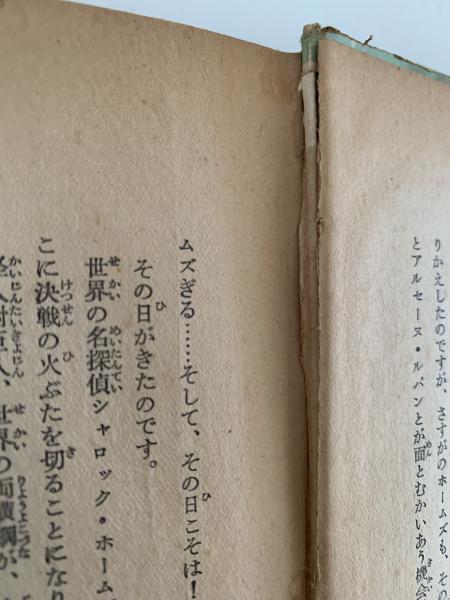 りかえしたのですが、さすがのホームズも、その
とアルセーヌ・ルパンとが面とむかいあう機会
ムズぎる……そして、その日こそは！
その日がきたのです。
世界の名探偵シャロック・ホーム
こに決戦の火ぶたを切ることにな
人対巨人、世界の両横綱が、